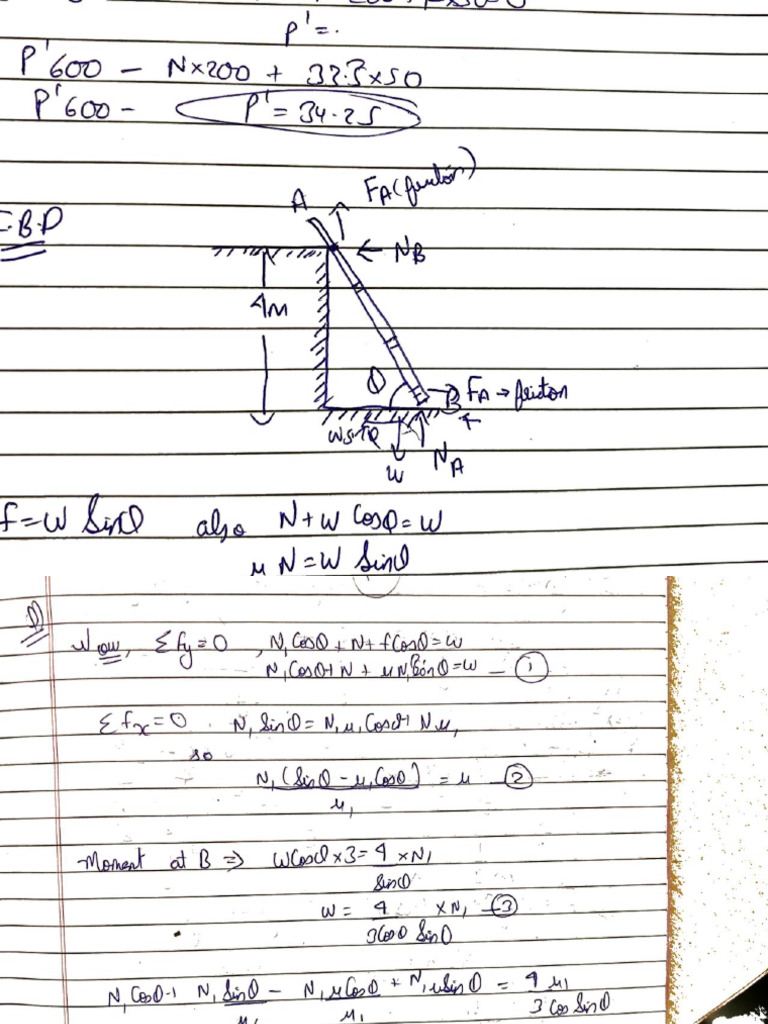 P' = .
P'600 - N×200 + 33.3×50
P'600 - P' = 34.25
A
F_A (friction)
F.B.D
← N_B
4m
θ
B F_A → friction
W sinθ
W
N_A
f = W Sinθ also N + W Cosθ = W
μ N = W Sinθ
Now, Σfy = 0 , N₁Cosθ + N + fCosθ = W
N₁Cosθ + N + μN₁Sinθ = W — ①
Σfx = 0 . N₁Sinθ = N₁μ₁Cosθ + Nμ₁
so
N₁(Sinθ - μ₁Cosθ) = μ — ②
μ₁
Moment at B ⇒ WCosθ × 3 = 4 × N₁
Sinθ
W = 4 × N₁ — ③
3Cosθ Sinθ
N₁Cosθ + N₁Sinθ - N₁μCosθ + N₁μSinθ = 4 μ₁
μ₁ μ₁ 3 Cos Sinθ